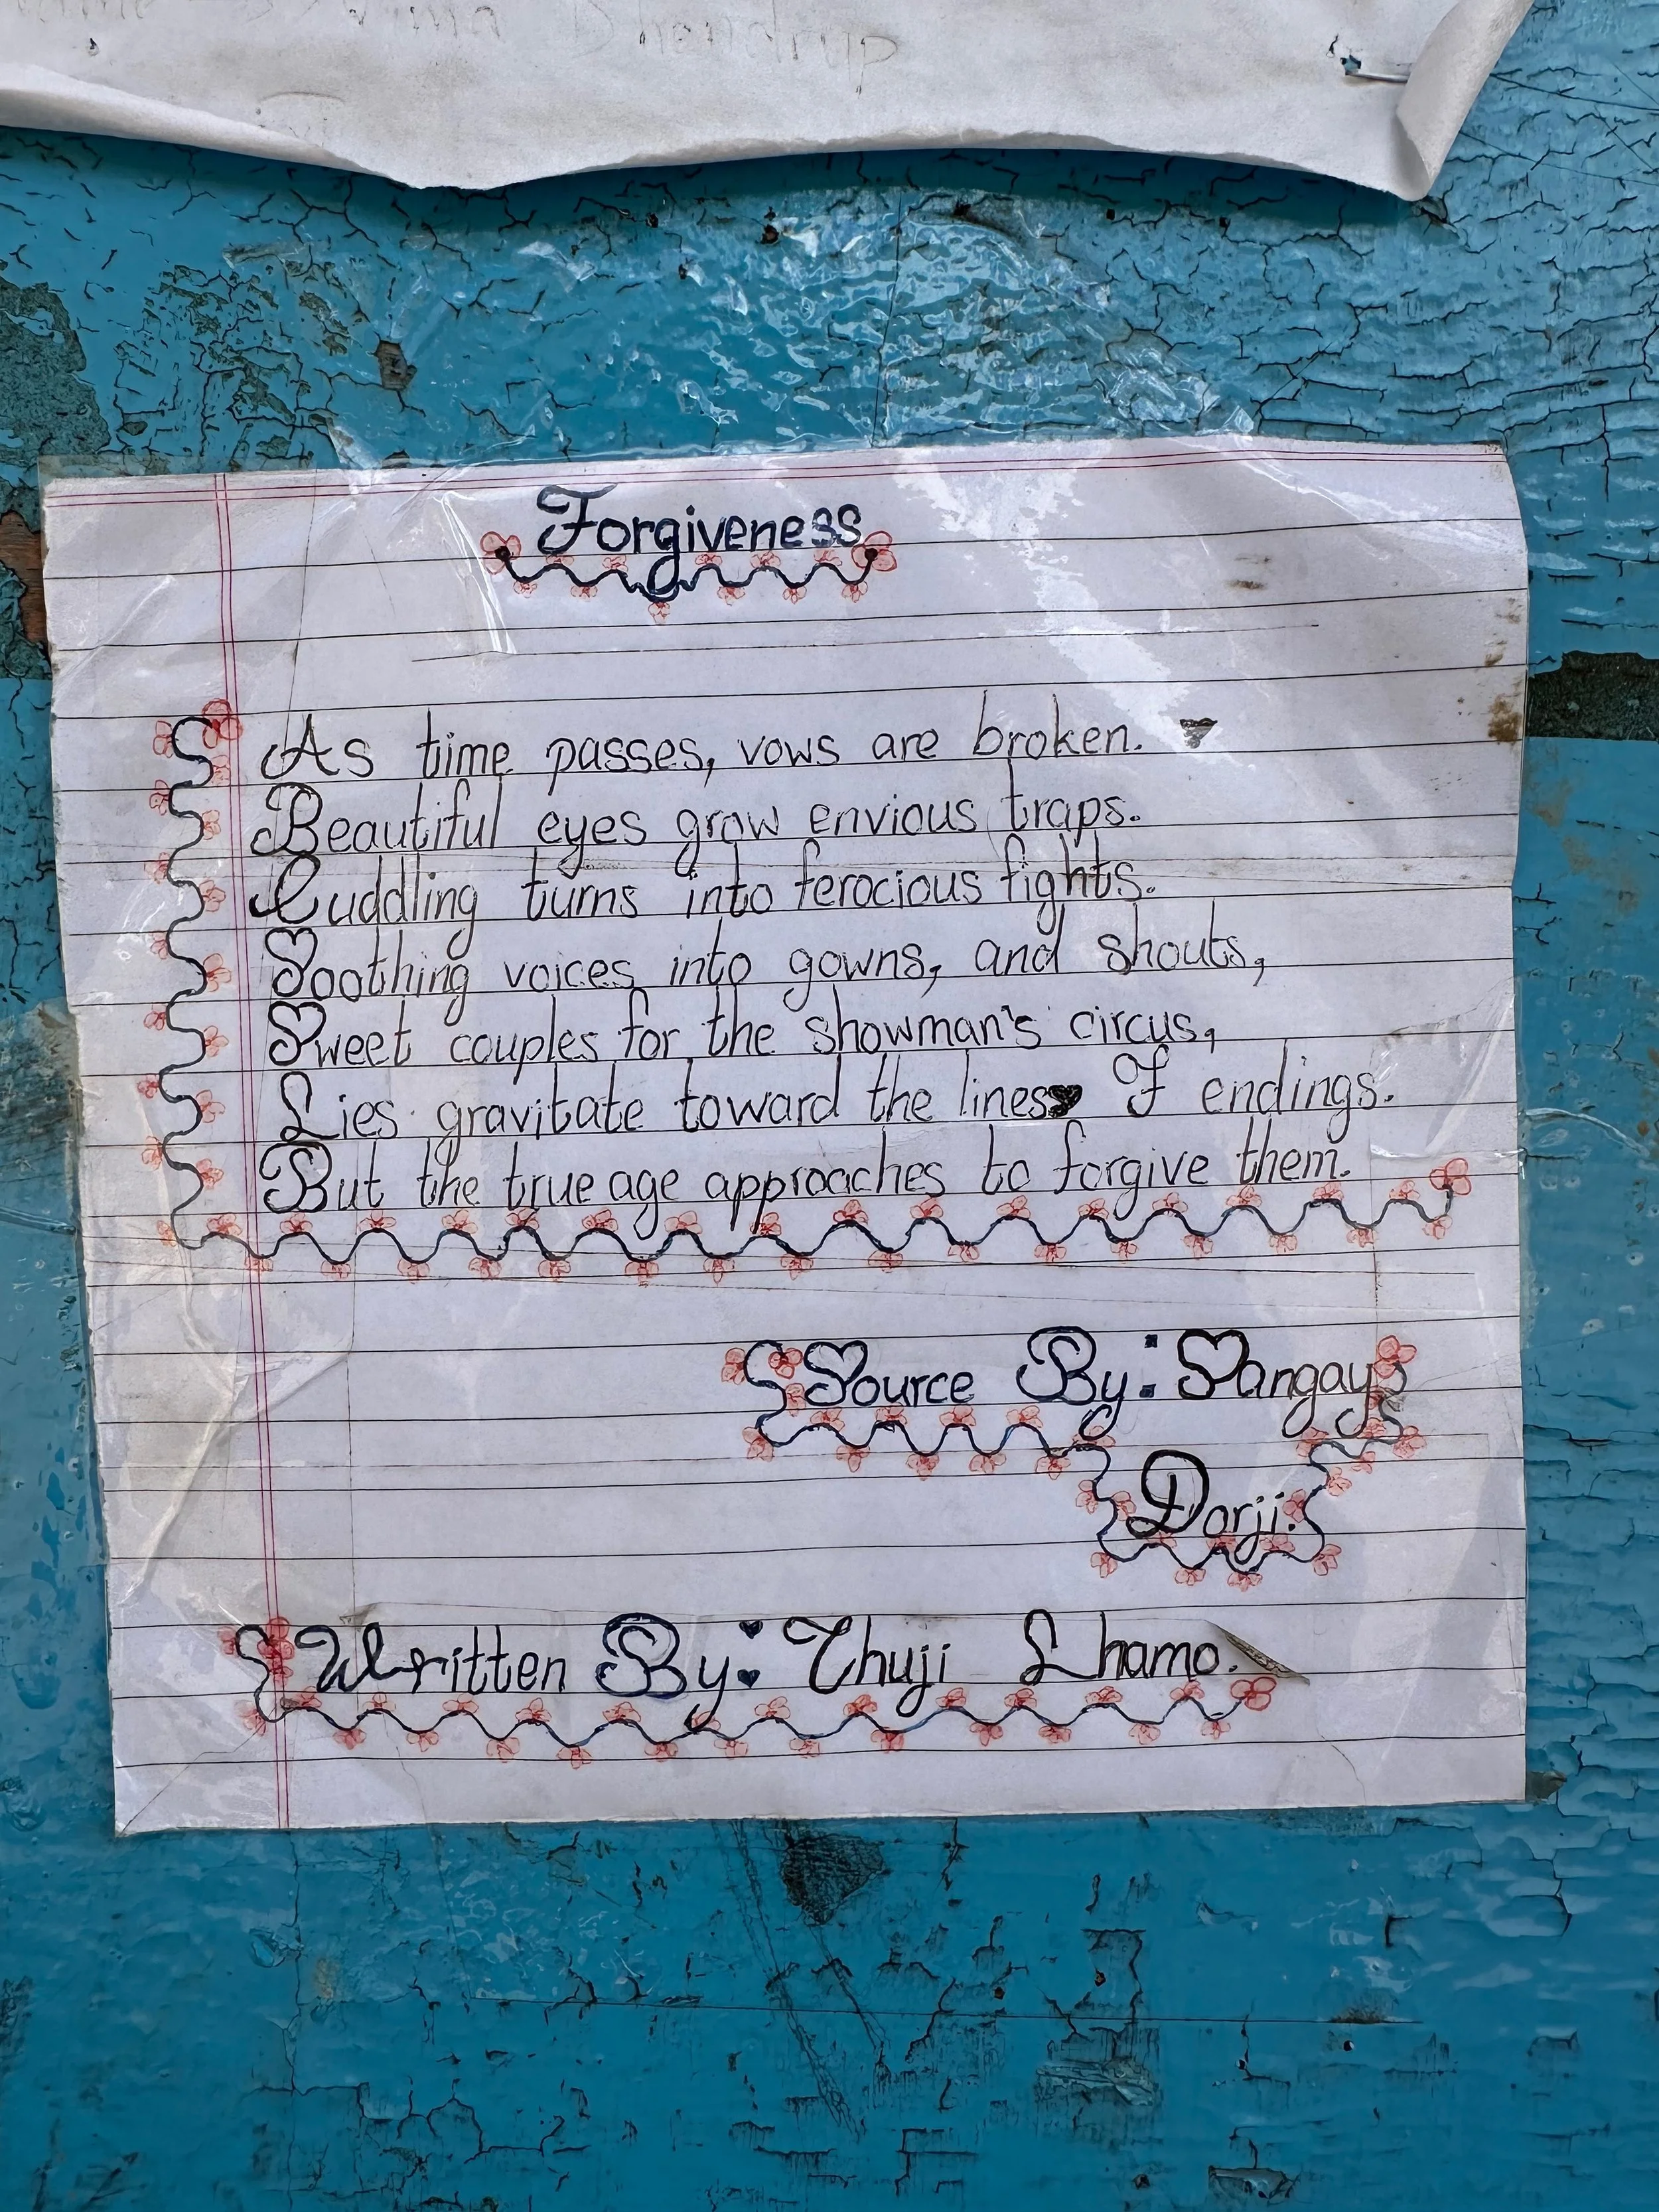 Forgiveness
As time passes, vows are broken.
Beautiful eyes grow envious traps.
Cuddling turns into ferocious fights.
Soothing voices into gowns, and shouts,
Sweet couples for the showman's circus,
Lies gravitate toward the lines Of endings.
But the true age approaches to forgive them.
Source By: Sangay
Dorji.
Written By: Thuji Lhamo.